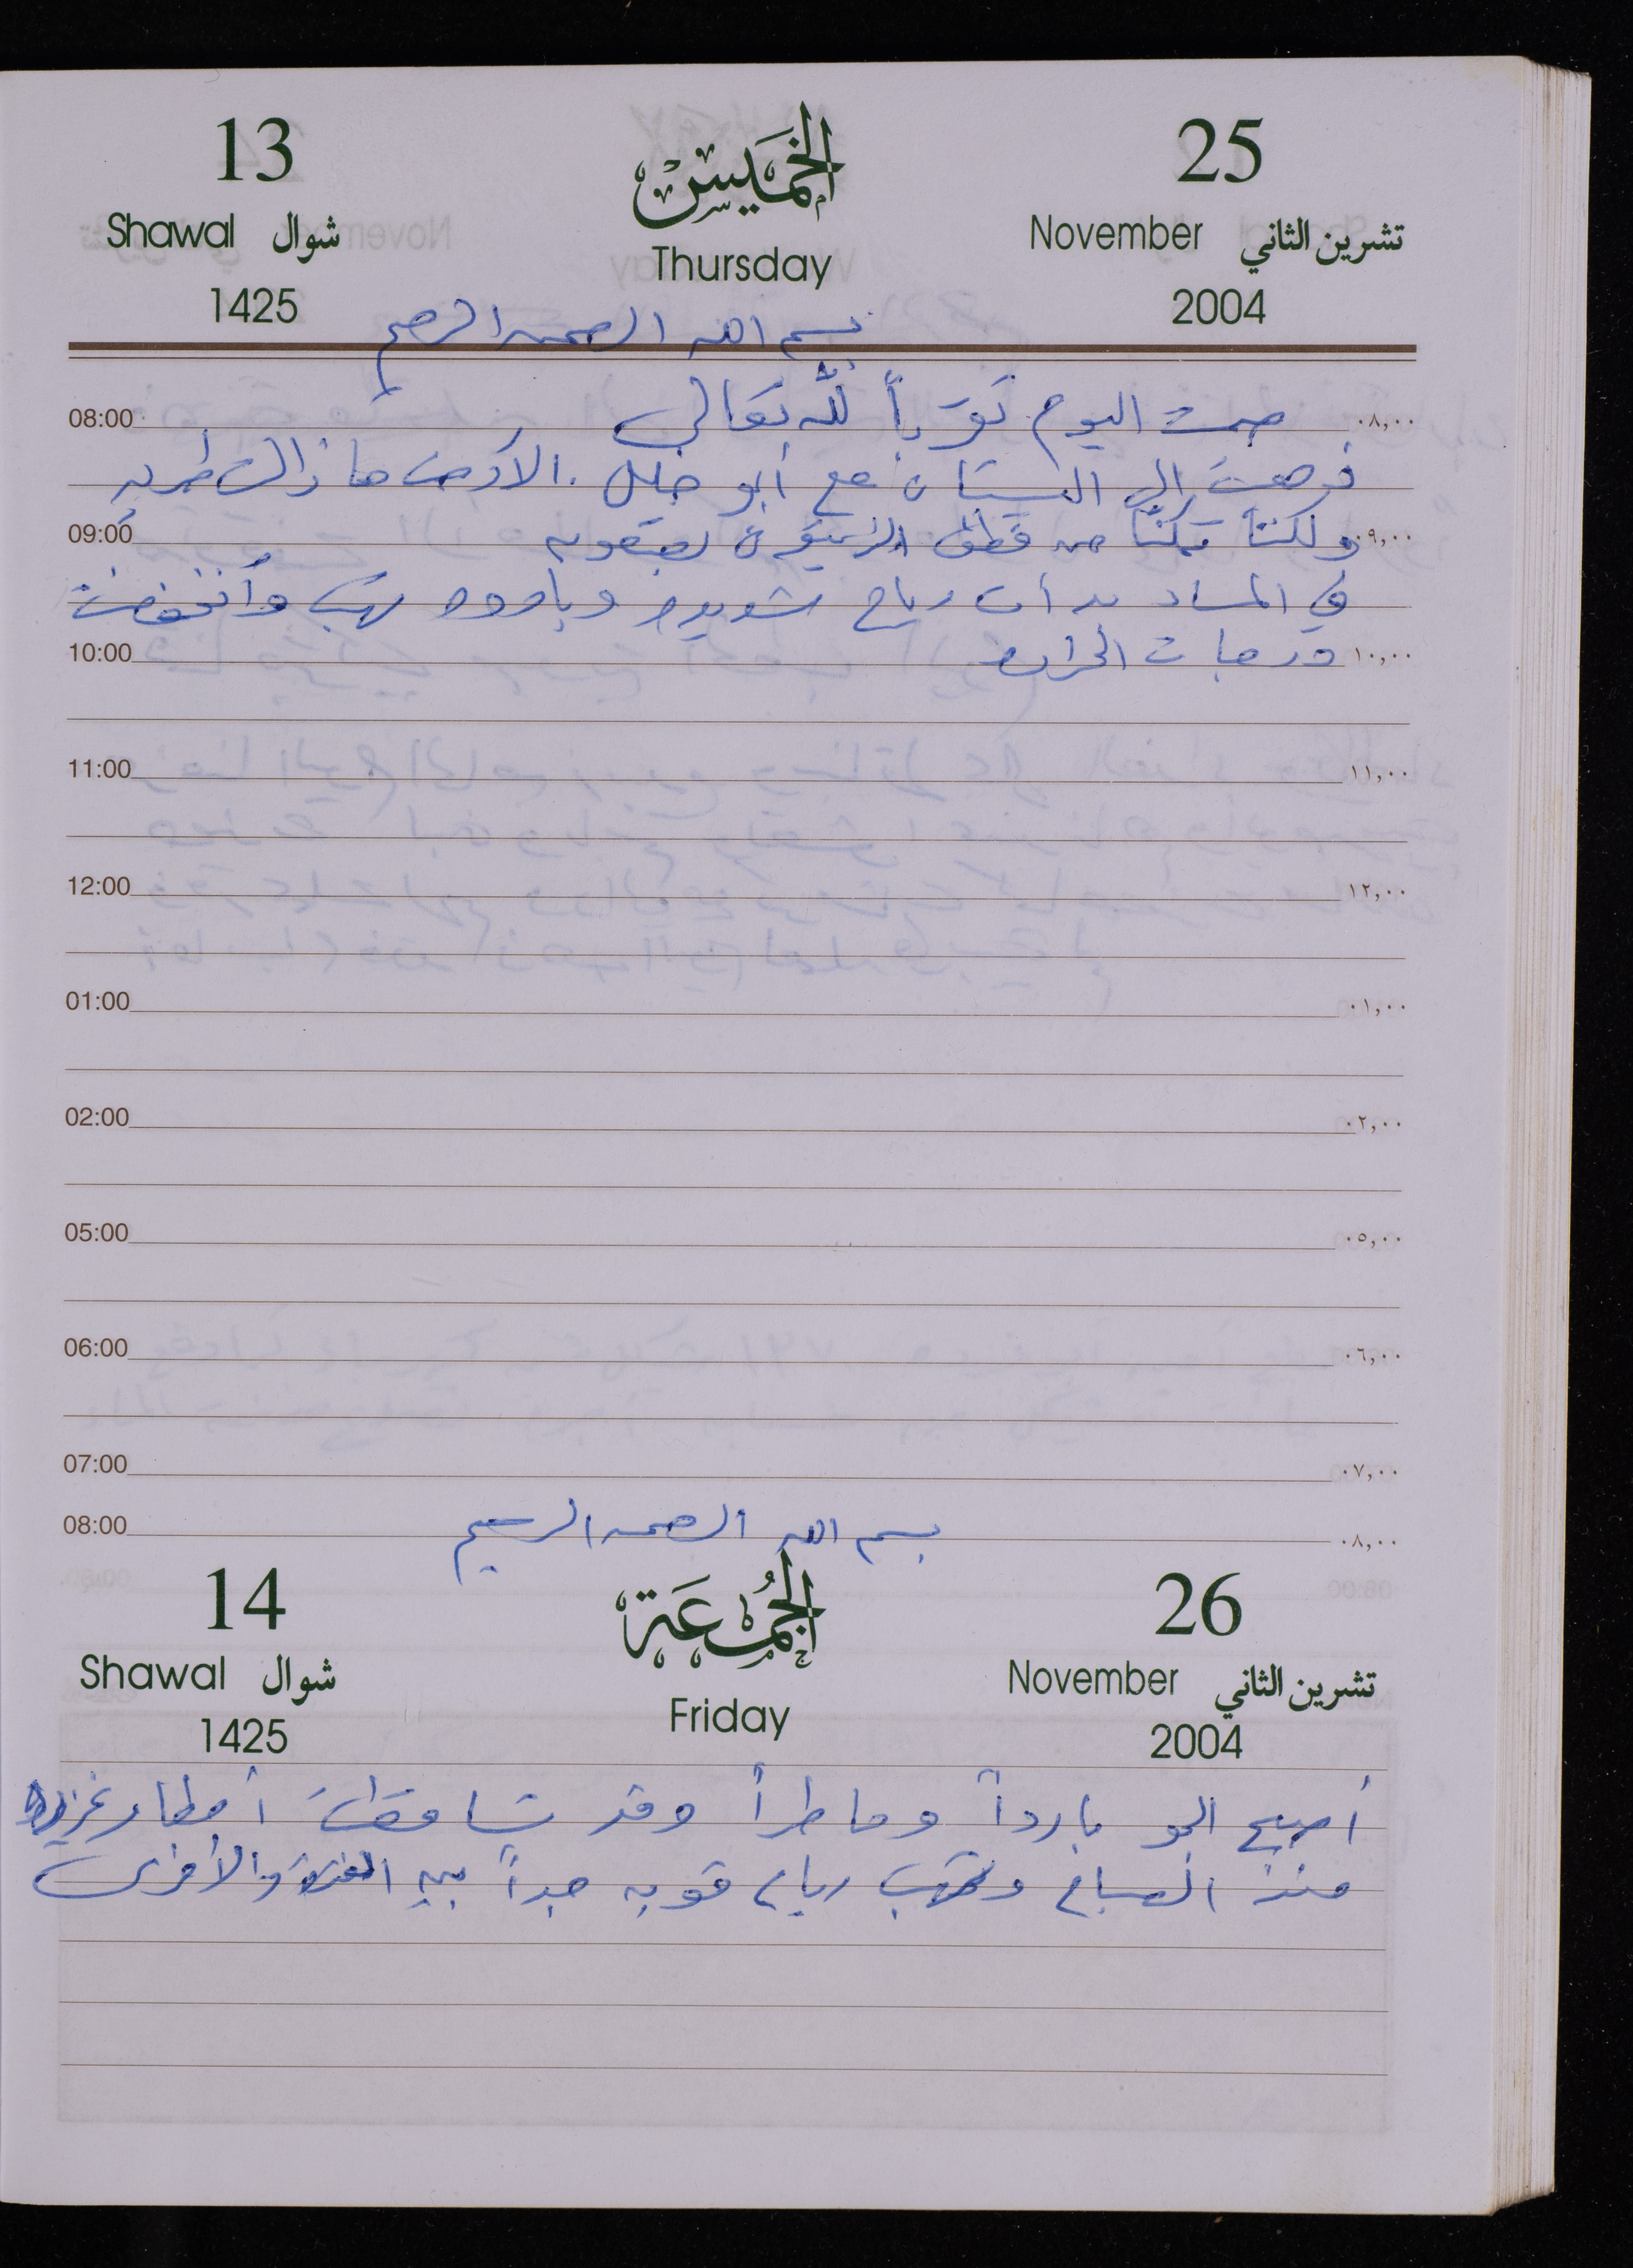 25 الخميس 13
November تشرين الثاني Thursday Shawal شوال
2004 1425
بسم الله الرحمن الرحيم
08:00 صمت اليوم تقرباً لله تعالى ٠٨,٠٠
ذهبت إلى البستان مع أبو خليل . الأرض ما زالت طرية
09:00 ولكننا تمكنّا من قطف الزيتون بصعوبة ٠٩,٠٠
في المساء بدأت رياح شديدة وباردة تهب وأنخفضت
10:00 درجات الحرارة ١٠,٠٠
11:00 ١١,٠٠
12:00 ١٢,٠٠
01:00 ٠١,٠٠
02:00 ٠٢,٠٠
05:00 ٠٥,٠٠
06:00 ٠٦,٠٠
07:00 ٠٧,٠٠
08:00 بسم الله الرحمن الرحيم ٠٨,٠٠
26 الجمعة 14
November تشرين الثاني Friday Shawal شوال
2004 1425
أصبح الجو بارداً وماطراً وقد تساقطت أمطار غزيرة
منذ الصباح وتهب رياح قوية جداً بين الفترة والأخرى